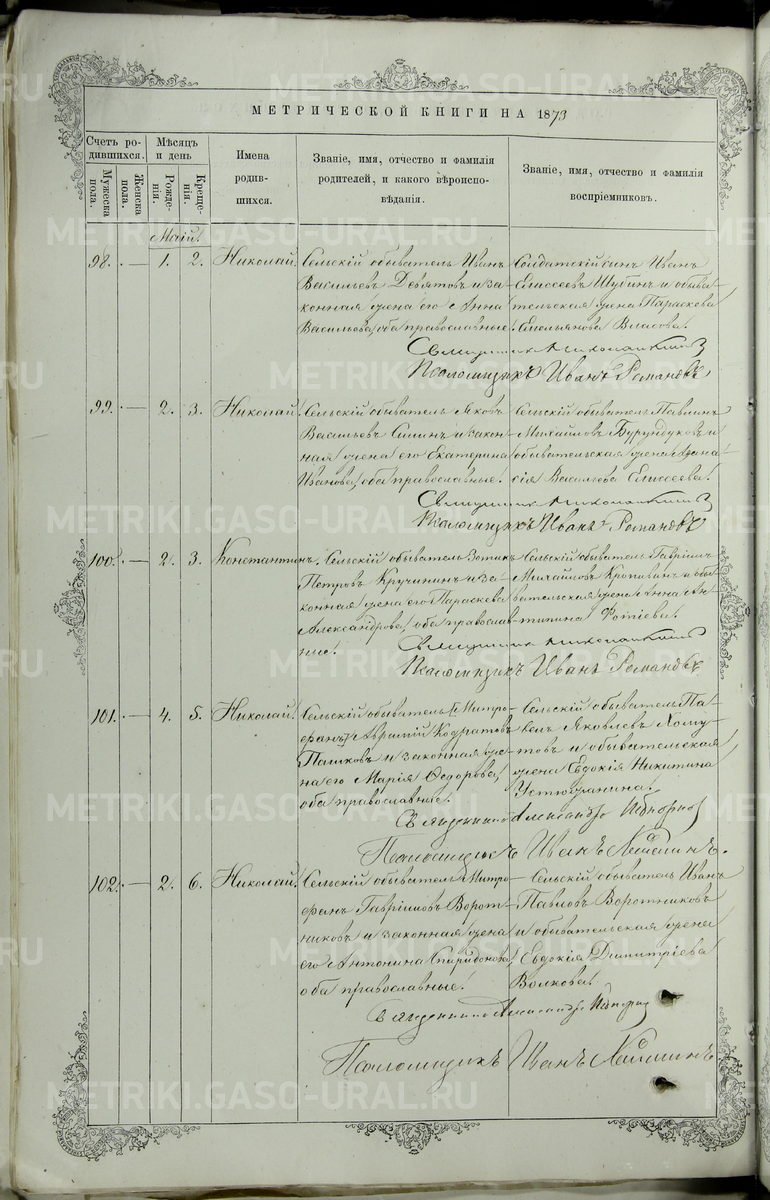 МЕТРИЧЕСКОЙ КНИГИ НА 1873
Счетъ ро-
дившихся.
Мужеска
пола.
Женска
пола.
Мѣсяцъ
и день
Рожде-
нія.
Креще-
нія.
Имена
родив-
шихся.
Званіе, имя, отчество и фамилія
родителей, и какого вѣроиспо-
вѣданія.
Званіе, имя, отчество и фамилія
воспріемниковъ.
Маій.
98. — 1. 2. Николай.
Сельскій обыватель Иванъ
Васильевъ Девятовъ и за-
конная жена его Анна
Васильева, оба православные.
Солдатскій сынъ Иванъ
Елисеевъ Шубинъ и обыва-
тельская жена Параскева
Емельянова Власова.
Священникъ
Псаломщикъ Иванъ Романовъ
99. — 2. 3. Николай.
Сельскій обыватель Яковъ
Васильевъ Силинъ и закон-
ная жена его Екатерина
Иванова, оба православные.
Сельскій обыватель Павлинъ
Михайловъ Бурундуковъ и
обывательская жена Афана-
сія Васильева Елисеева.
Священникъ
Псаломщикъ Иванъ Романовъ
100. — 2. 3. Константинъ.
Сельскій обыватель Зотикъ
Петровъ Кручининъ и за-
конная жена его Параскева
Александрова, оба православ-
ные.
Сельскій обыватель Гавріилъ
Михайловъ и обы-
вательская жена Анна Ан-
типина Фотіева.
Священникъ
Псаломщикъ Иванъ Романовъ
101. — 4. 5. Николай.
Сельскій обыватель [Митро-
фанъ] Авраамій Кодратовъ
Пашковъ и законная же-
на его Марія Ѳедорова,
оба православные.
Сельскій обыватель Па-
велъ Яковлевъ Хому-
товъ и обывательская
жена Евдокія Никитина
Устюжанина.
Священникъ Александръ
Псаломщикъ Иванъ
102. — 2. 6. Николай.
Сельскій обыватель Митро-
фанъ Гавріиловъ Ворот-
никовъ и законная жена
его Антонина Спиридонова,
оба православные.
Сельскій обыватель Иванъ
Павловъ Воротниковъ
и обывательская жена
Евдокія Димитріева
Волкова.
Священникъ Александръ
Псаломщикъ Иванъ
METRIKI.GASO-URAL.RU